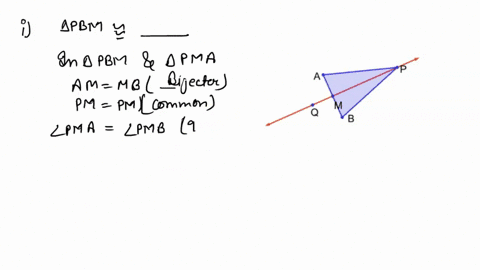 i) ΔPBM ≅ ____
In ΔPBM & ΔPMA
AM = MB ( Bisector)
PM = PM (common)
∠PMA = ∠PMB (9
A
P
M
Q
B